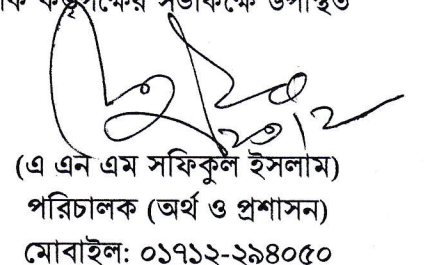 কর্তৃপক্ষের সভাকক্ষে উপস্থিত
(এ এন এম সফিকুল ইসলাম)
পরিচালক (অর্থ ও প্রশাসন)
মোবাইল: ০১৭১২-২৯৪০৫০